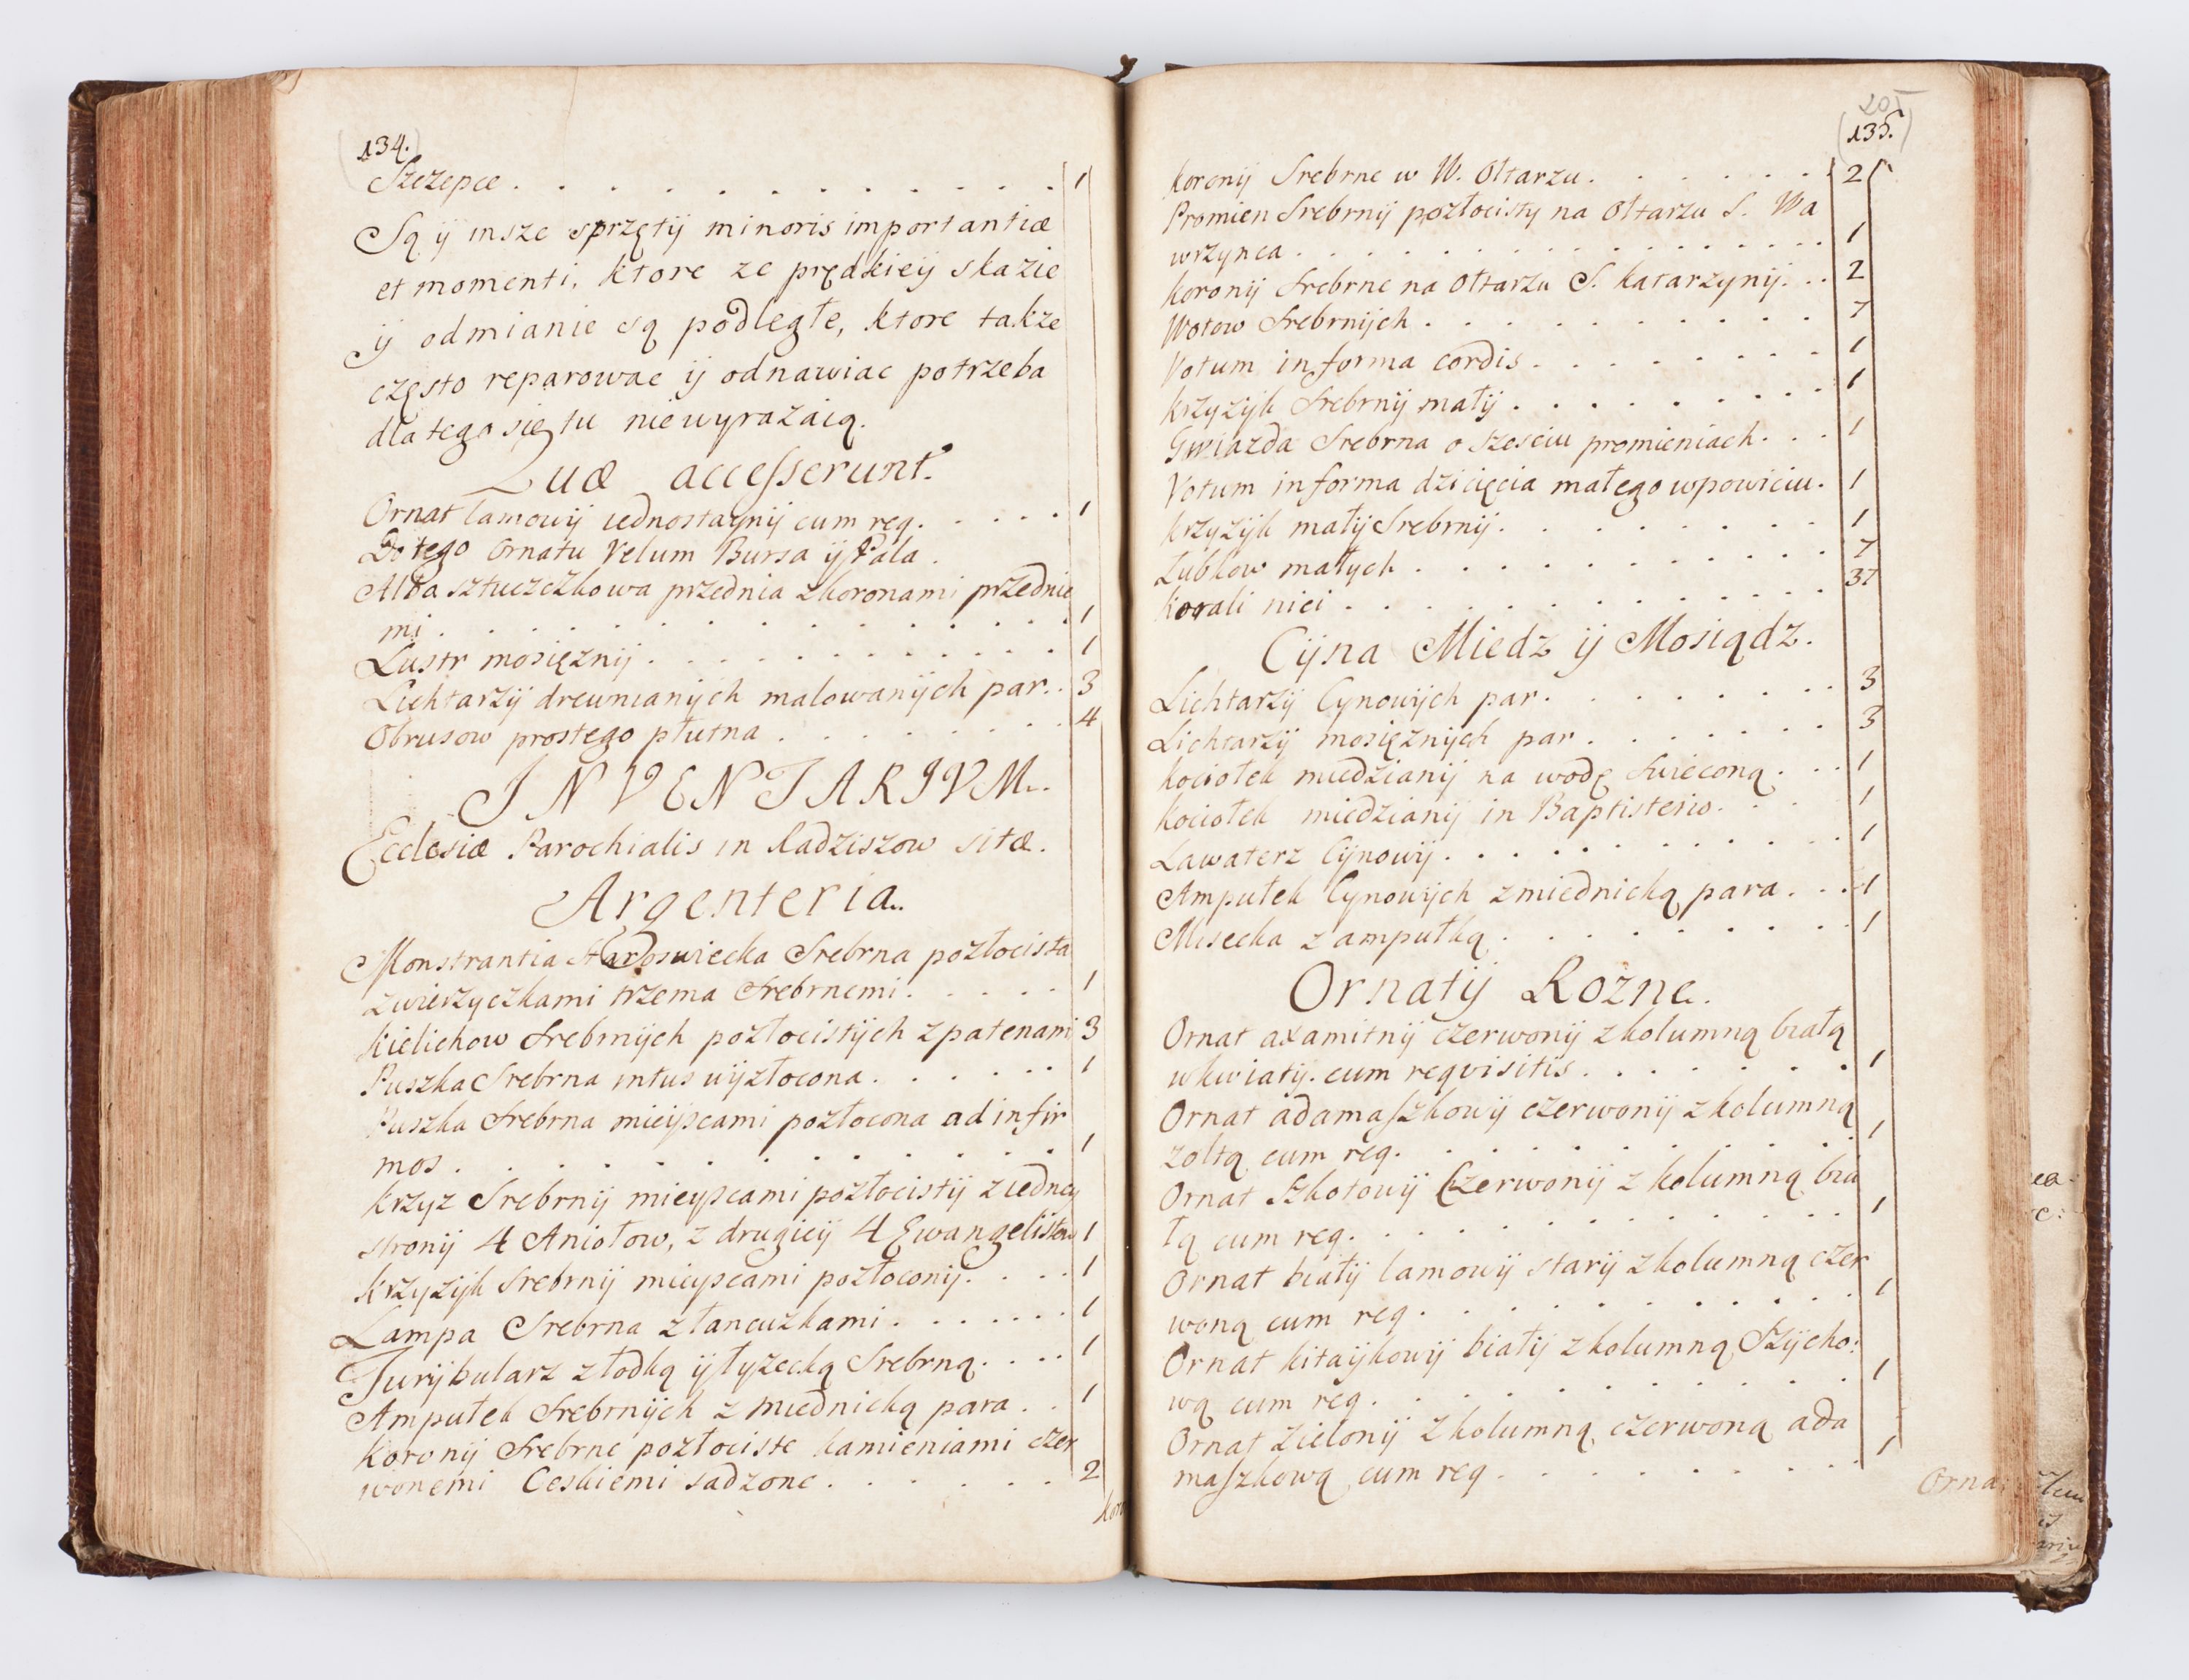 134.
Szczepce . . . . . . . . . . . . 1
Są ÿ insze sprzętÿ minoris importantiæ
et momenti, ktore ze prędkieÿ skazie
ÿ odmianie są podległe, ktore także
często reparowac ÿ odnawiac potrzeba
dla tego się tu niewyrazaią.
Quæ accesserunt.
Ornat lamowÿ iednostaynÿ cum req. . . . . . 1
Do tego Ornatu Velum Bursa ÿ Pala .
Alba sztuczczkowa przednia zkoronami przednie
mi . . . . . . . . . . . . . . . 1
Lustr mosięznÿ . . . . . . . . . . . 1
Lichtarzÿ drewnianÿch malowanÿch par. . 3
Obrusow prostego płutna . . . . . . . 4
INVENTARIVM.
Ecclesiæ Parochialis in Radziszow sitæ.
Argenteria.
Monstrantia Staroswiecka Srebrna pozłocista
zwierzyczkami trzema Srebrnemi . . . . . 1
Kielichow Srebrnÿch pozłocistÿch zpatenami 3
Puszka Srebrna intus wÿzłocona . . . . . . 1
Puszka Srebrna mieÿscami pozłocona ad infir
mos . . . . . . . . . . . . . 1
Krzyz Srebrnÿ mieyscami pozłocistÿ ziedney
stronÿ 4 Aniołow, z drugieÿ 4 Ewangelistow 1
Krzyzÿk Srebrnÿ mieyscami pozłoconÿ. . . . . 1
Lampa Srebrna złancuzkami . . . . . . . 1
Turÿbularz złodką ÿ łyzecką Srebrną. . . . 1
Ampułek Srebrnÿch z miednicką para . . 1
Koronÿ Srebrne pozłociste kamieniami czer
wonemi Ceskiemi sadzone . . . . . . 2
Koro
205
135.
Koronÿ Srebrne w W. Ołtarzu . . . . . . 2
Promien Srebrnÿ pozłocisty na Ołtarzu S. Wa
wrzynca . . . . . . . . . . . . . . 1
Koronÿ Srebrne na Ołtarzu S. Katarzynÿ. . . 2
Wotow Srebrnÿch . . . . . . . . . . 7
Votum in forma cordis . . . . . . . . 1
Krzyzÿk Srebrnÿ małÿ . . . . . . . . . 1
Gwiazda Srebrna o szesciu promieniach. . . 1
Votum in forma dziecięcia małego wpowiciu. 1
Krzyzÿk małÿ Srebrnÿ . . . . . . . . 1
Łubkow małych . . . . . . . . . . . 7
Korali nici . . . . . . . . . . . . . 37
Cÿna Miedz ÿ Mosiądz.
Lichtarzÿ Cynowÿch par . . . . . . . . 3
Lichtarzÿ mosięznÿch par . . . . . . . 3
Kociołek miedzianÿ na wodę swieconą . . . 1
Kociołek miedzianÿ in Baptisterio . . . . 1
Lawaterz Cÿnowÿ . . . . . . . . . . 1
Ampułek Cynowÿch zmiednicką para . . . 1
Misecka z ampułką . . . . . . . . . 1
Ornatÿ Rozne.
Ornat axamitnÿ czerwonÿ zkolumną białą
wkwiatÿ. cum reqvisitis . . . . . . . 1
Ornat adamaszkowÿ czerwonÿ zkolumną
zołtą cum req. . . . . . . . . . . 1
Ornat Szkotowÿ Czerwonÿ z kolumną bia
łą cum req. . . . . . . . . . . . 1
Ornat białÿ lamowÿ starÿ zkolumną czer
woną cum req . . . . . . . . . . . 1
Ornat kitaÿkowÿ białÿ zkolumną Szÿcho:
wą cum req . . . . . . . . . . . 1
Ornat zielonÿ zkolumną czerwoną ada
maszkową cum req . . . . . . . . . 1
Orna: